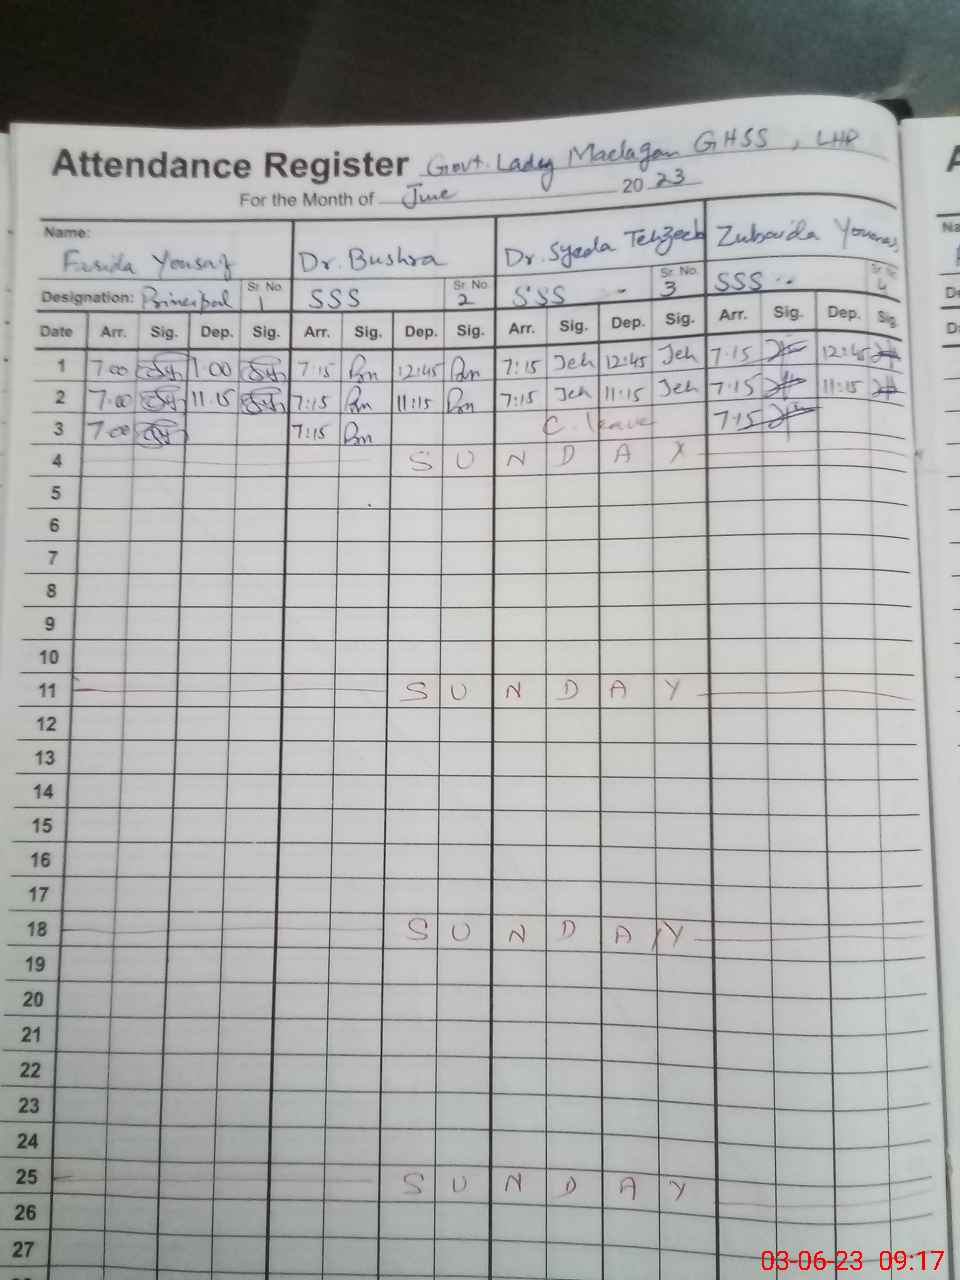 Attendance Register Govt. Lady Maclagan GHSS, LHR
For the Month of June 2023
Name: Farida Yousaf Dr. Bushra Dr. Syeda Tehzeeb Zubaida Younas
Designation: Principal Sr No. 1 SSS Sr No. 2 SSS Sr. No. 3 SSS Sr No 4
Date Arr. Sig. Dep. Sig. Arr. Sig. Dep. Sig. Arr. Sig. Dep. Sig. Arr. Sig. Dep. Sig.
1 7:00 1:00 7:15 12:45 7:15 Jeh 12:45 Jeh 7:15 12:45
2 7:00 11:15 7:15 11:15 7:15 Jeh 11:15 Jeh 7:15 11:15
3 7:00 7:15 C. leave 7:15
4 SUNDAY
5
6
7
8
9
10
11 SUNDAY
12
13
14
15
16
17
18 SUNDAY
19
20
21
22
23
24
25 SUNDAY
26
27
03-06-23 09:17